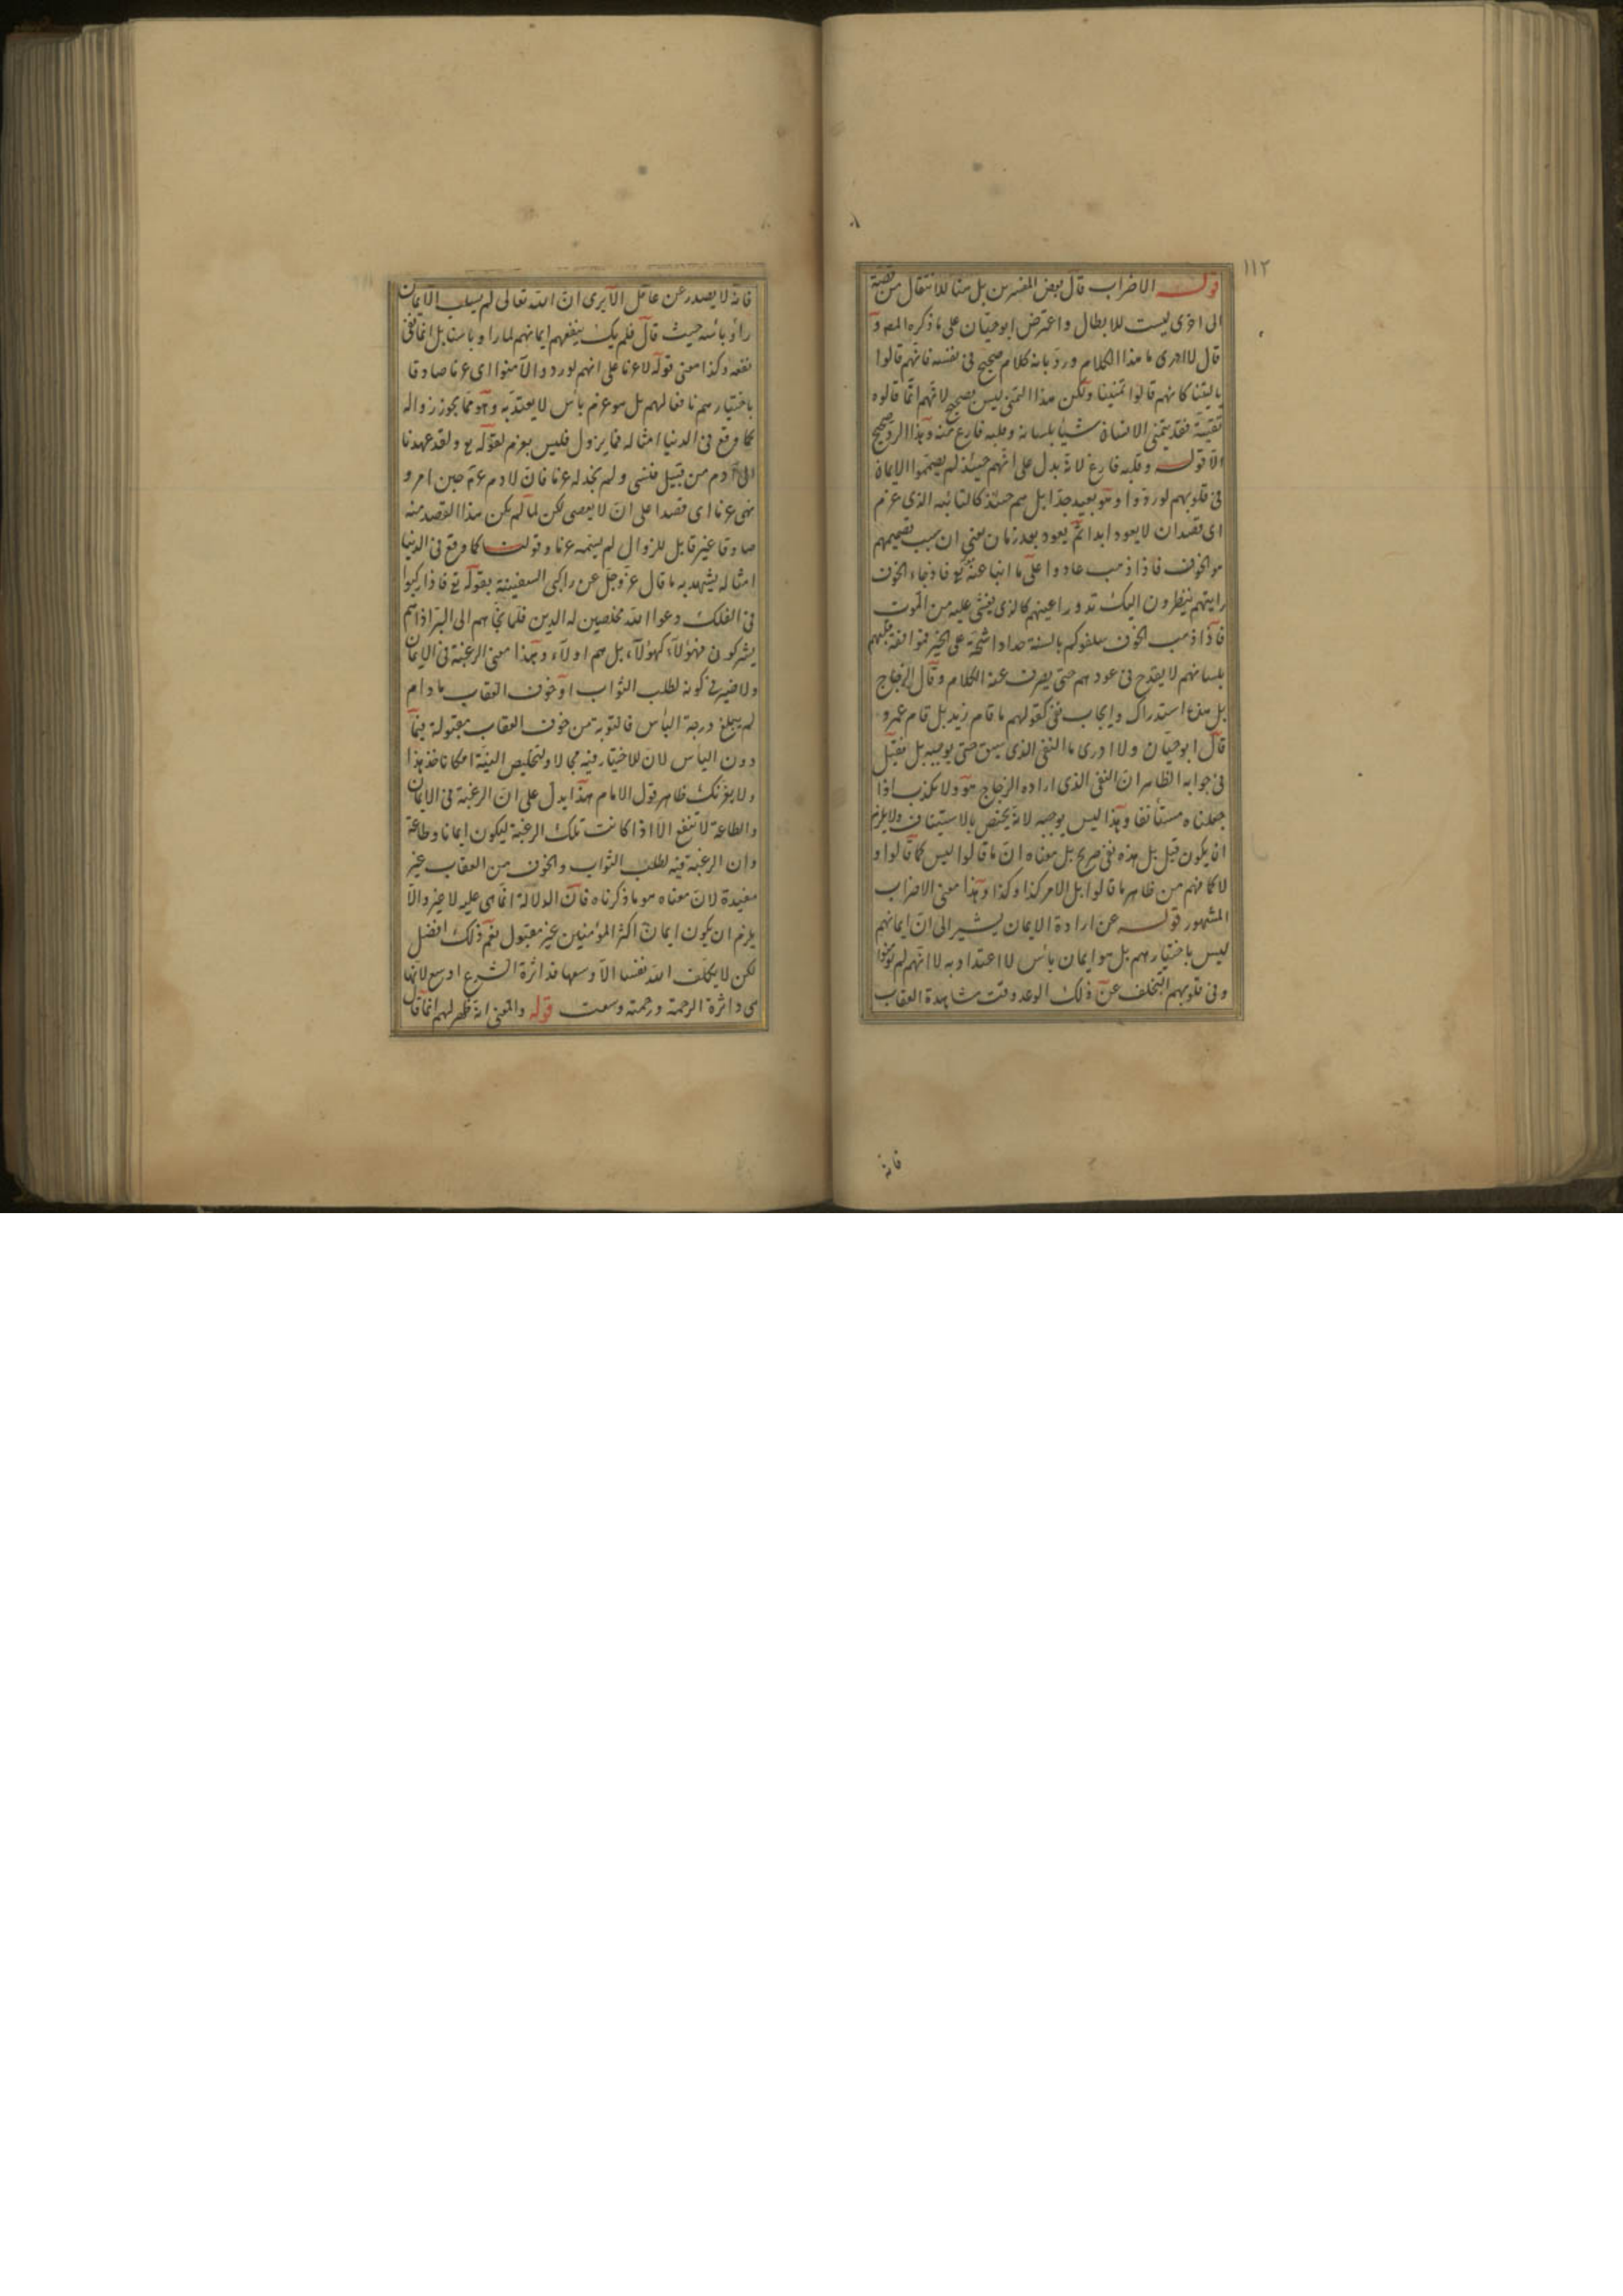 ١١٢
قوله الاضراب قال بعض المفسرين بل هنا للانتقال من قصة
الى اخرى ليست للابطال واعترض ابو حيان على ما ذكره المص و
قال لا ادرى ما هذا الكلام ورد بانه كلام صحيح فى نفسه فانهم قالوا
يا ليتنا كانهم قالوا تمنينا ولكن هذا التمنى ليس بصحيح لانهم انما قالوه
تقية فقد يتمنى الانسان شيأ بلسانه وقلبه فارغ منه وهذا الرد صحيح
الا قوله وقلبه فارغ لانه يدل على انهم حينئذ لم يصمموا الايمان
فى قلوبهم لو ردوا وهو بعيد جدا بل هم حينئذ كالتائب الذى عزم
اى قصد ان لا يعود ابدا ثم يعود بعد زمان يعنى ان سبب تصميمهم
هو الخوف فاذا ذهب عادوا على ما انبأ عنه تع فاذا جاء الخوف
رايتهم ينظرون اليك تدور اعينهم كالذى يغشى عليه من الموت
فاذا ذهب الخوف سلقوكم بالسنة حداد اشحة على الخير فموافقة قلبهم
بلسانهم لا يقدح فى عودهم حتى يصرف عنه الكلام وقال الزجاج
بل هنا استدراك وايجاب نفى كقولهم ما قام زيد بل قام عمرو
قال ابو حيان ولا ادرى ما النفى الذى سبق حتى يوجبه بل فقيل
فى جوابه الظاهر ان النفى الذى اراده الزجاج هو ولا نكذب اذا
جعلناه مستأنفا وهذا ليس بوجه لانه يختص بالاستيناف ولا يلزم
ان يكون قبل بل هذه نفى صريح بل معناه ان ما قالوا ليس كما قالوا و
لا كما فهم من ظاهر ما قالوا بل الامر كذا وكذا وهذا معنى الاضراب
المشهور قوله عن ارادة الايمان يشير الى ان ايمانهم
ليس باختيارهم بل هو ايمان بأس لا اعتداد به لا انهم لم
وفى قلوبهم التخلف عن ذلك الوعد وقت مشاهدة العقاب
فانه
فانه لا يصدر عن عاقل الا يرى ان الله تعالى لم يسلب الايمان
راؤ بائسه حيث قال فلم يك ينفعهم ايمانهم لما راوا باسنا بل انما نفى
نفعه وكذا معنى قوله لا عزما على انهم لو ردوا لآمنوا اى عزما صادقا
باختيارهم نافعا لهم بل هو عزم بأس لا يعتد به وهو مما يجوز زواله
كما وقع فى الدنيا امثاله فما يزول فليس بعزم لقوله تع ولقد عهدنا
الى آدم من قبل فنسى ولم نجد له عزما فان لادم عم حين امر و
نهى عزما اى قصدا على ان لا يعصى لكن لما لم يكن هذا القصد منه
صادقا غير قابل للزوال لم يسمه عزما وقوله كما وقع فى الدنيا
امثاله يشهد به ما قال عز وجل عن راكبى السفينة بقوله تع فاذا ركبوا
فى الفلك دعوا الله مخلصين له الدين فلما نجاهم الى البر اذا هم
يشركون فهؤلآء كهؤلآء بل هم اولاء وهذا معنى الرغبة فى الايمان
ولا ضير فى كونه لطلب الثواب او خوف العقاب ما دام
لم يبلغ درجة اليأس فالتوبة من خوف العقاب مقبولة فيما
دون اليأس لان للاختيار فيه مجالا ولتخليص النية امكانا فخذ هذا
ولا يغرنك ظاهر قول الامام هذا يدل على ان الرغبة فى الايمان
والطاعة لا تنفع الا اذا كانت تلك الرغبة ليكون ايمانا وطاعة
وان الرغبة فيه لطلب الثواب والخوف من العقاب غير
مفيدة لان معناه هو ما ذكرناه فان الدلالة انما هى عليه لا غير والا
يلزم ان يكون ايمان اكثر المؤمنين غير مقبول نعم ذلك افضل
لكن لا يكلف الله نفسا الا وسعها فدائرة الشرع اوسع لانها
هى دائرة الرحمة ورحمته وسعت قوله والمعنى انه ظهر لهم انما قال